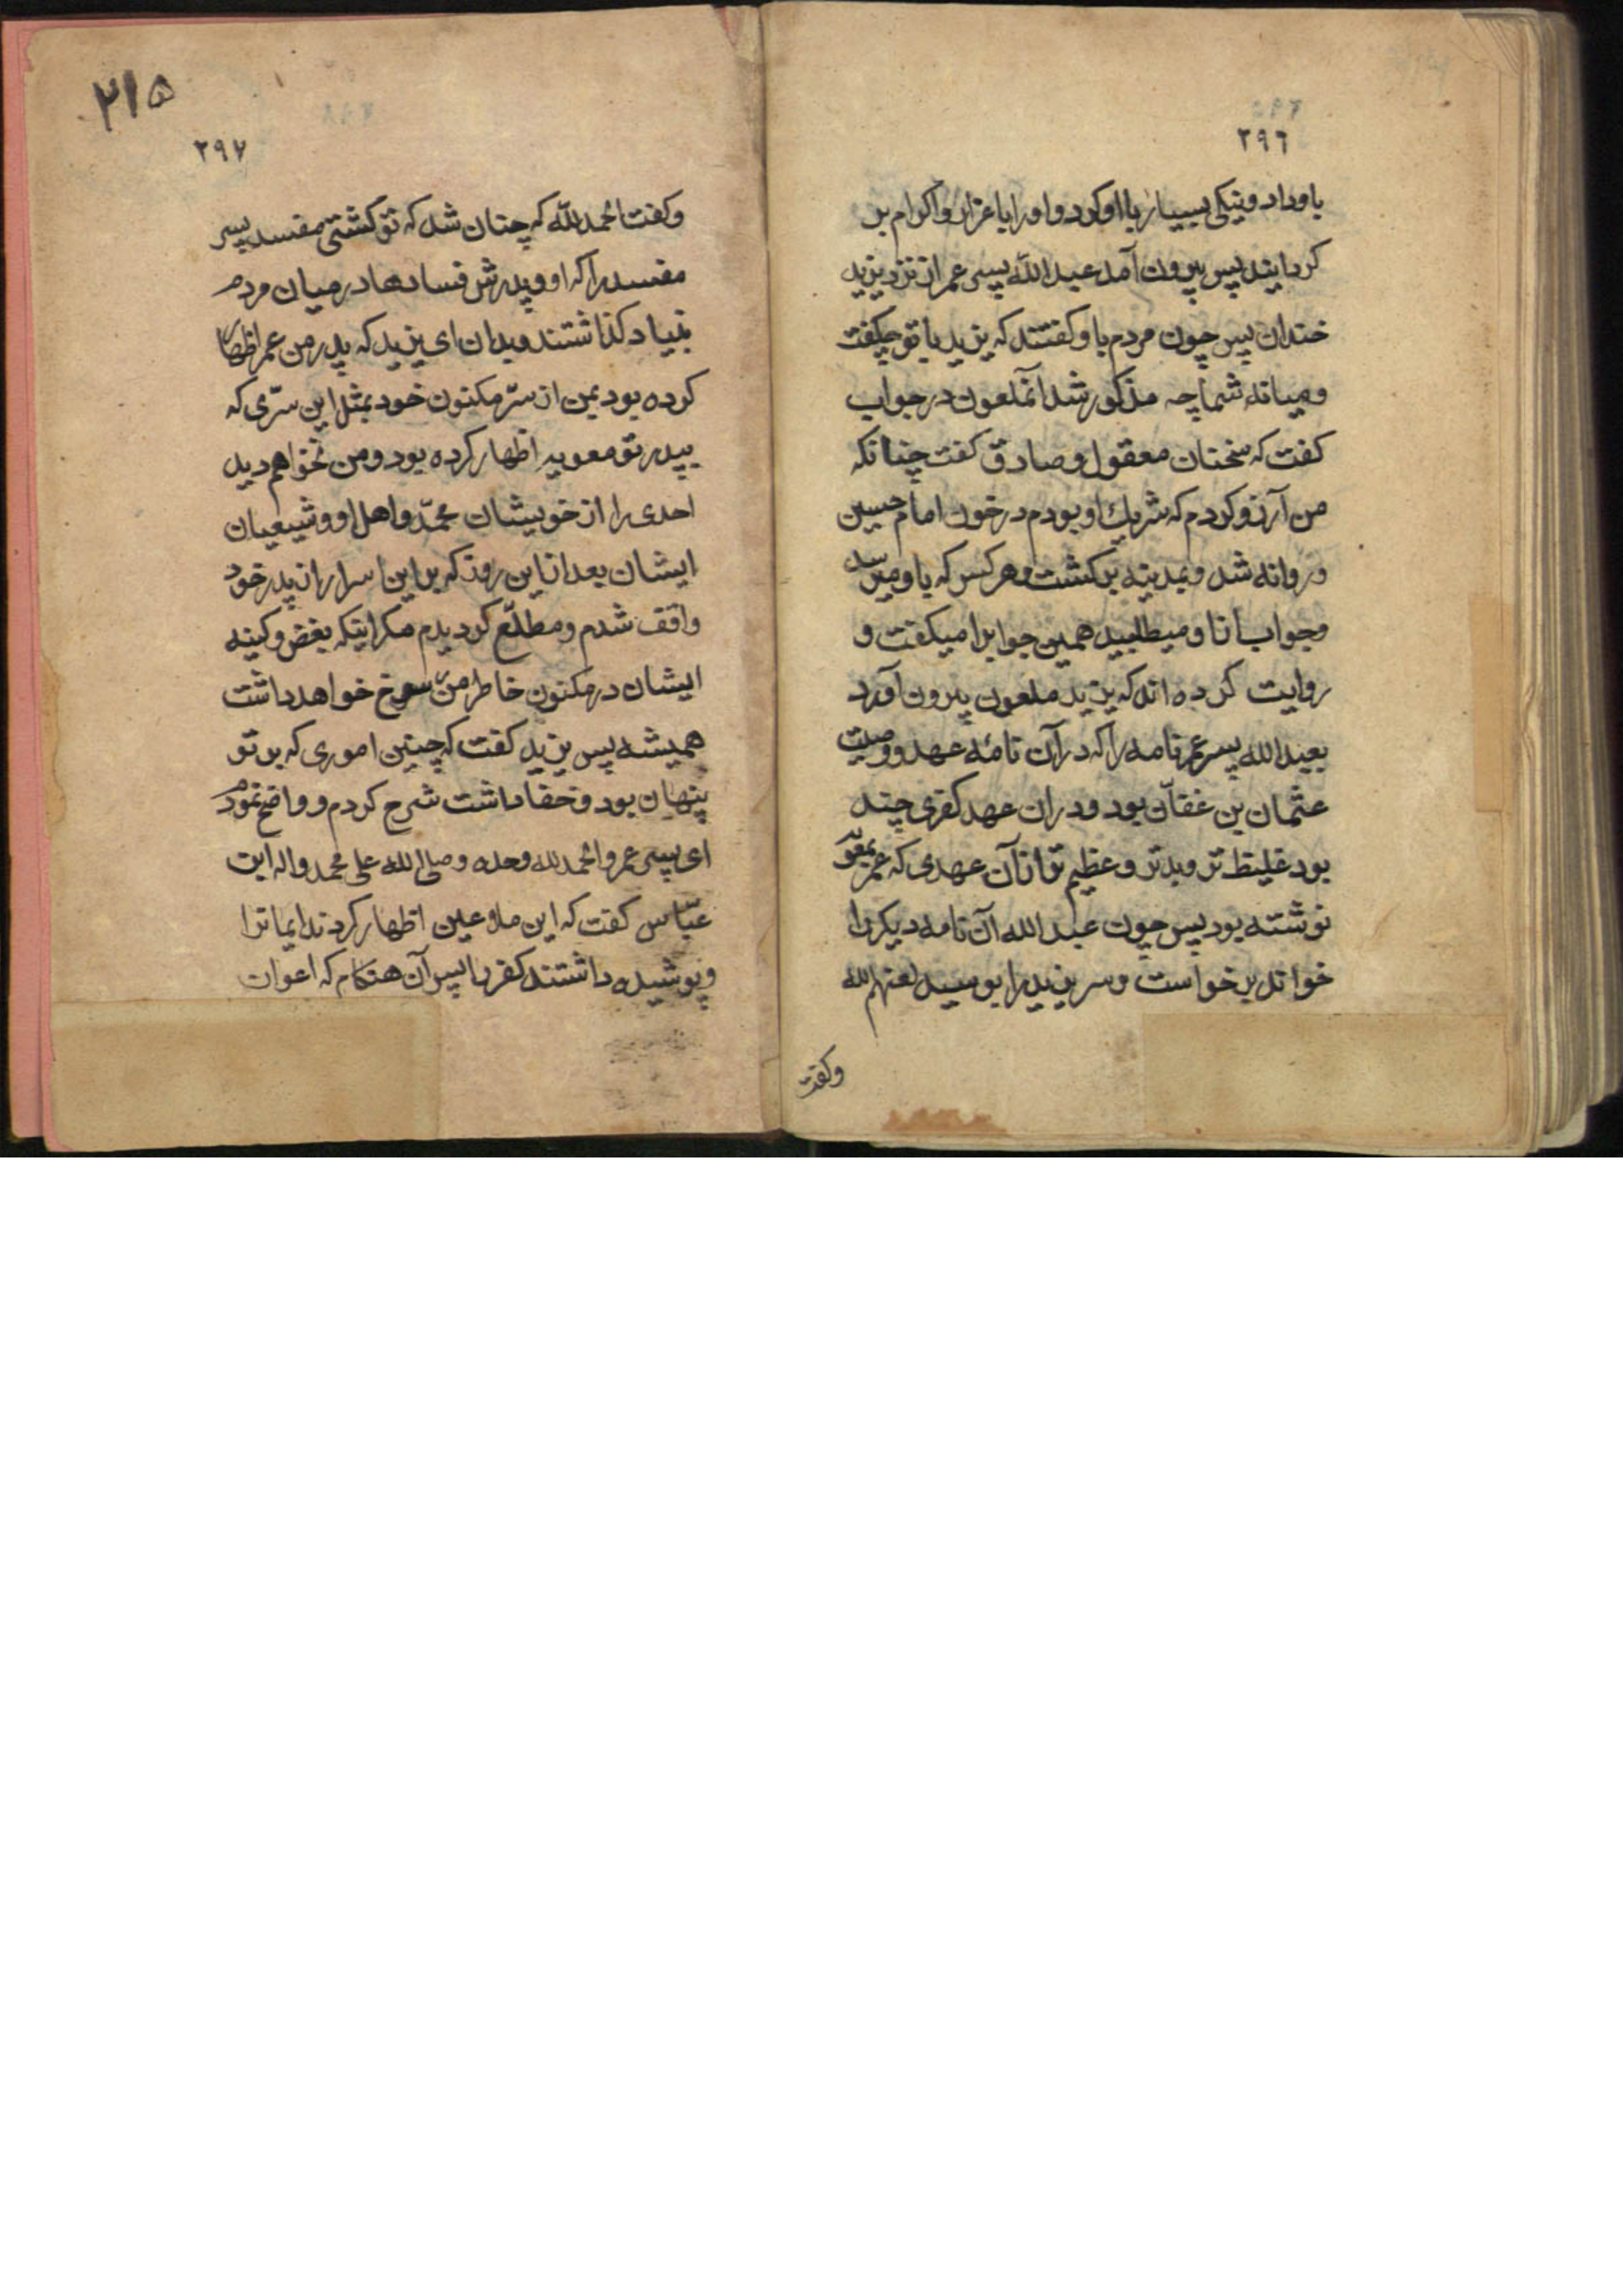 ۲۹۶
باو داد و نیکی بسیار با او کرد و او را باعزاز و اکرام بر
کردانید پس بیرون آمد عبدالله پسر عمر از نزد یزید
خندان پس چون مردم باو کفتند که یزید با تو چکفت
و میانه شما چه مذکور شد انملعون در جواب
کفت که سخنان معقول و صادق کفت چنانکه
من آرزو کردم که شریک او بودم در خون امام حسین
و روانه شد و بمدینه برکشت و هر کس که باو میرسید
و جواب ازا و میطلبید همین جوابرا میکفت و
روایت کرده اند که یزید ملعون بیرون آورد
بعبدالله پسر عمر نامه را که در آن نامهٔ عهد و وصیت
عثمان بن عفّان بود و در ان عهد کفری چند
بود غلیظ تر و بدتر و عظیم تر از آن عهدی که عمر بمعویه
نوشته بود پس چون عبدالله آن نامه دیکر را
خواند برخواست و سر یزید را بوسید لعنهم الله
وکفت
۲۱۵
۲۹۷
وکفت الحمدللّه که چنان شد که تو کشتی مفسد پسر
مفسد را که او و پدرش فسادها در میان مردم
بنیاد کذاشتند و بدان ای یزید که پدر من عمر اظهار
کرده بود بمن از سرّ مکنون خود بمثل این سرّی که
بپدر تو معویه اظهار کرده بود و من نخواهم دید
احدی را از خویشان محمّد و اهل او و شیعیان
ایشان بعد از این روز که بر این اسرار از پدر خود
واقف شدم و مطلّع کردیدم مکر اینکه بغض و کینه
ایشان در مکنون خاطر من رسوخ خواهد داشت
همیشه پس یزید کفت که چنین اموری که بر تو
پنهان بود و خفا داشت شرح کردم و واضح نمودم
ای پسر عمر و الحمدلله وحده و صلی الله علی محمد واله ابن
عبّاس کفت که این ملاعین اظهار کردند ایمانرا
و پوشیده داشتند کفر را پس آن هنکام که اعوان